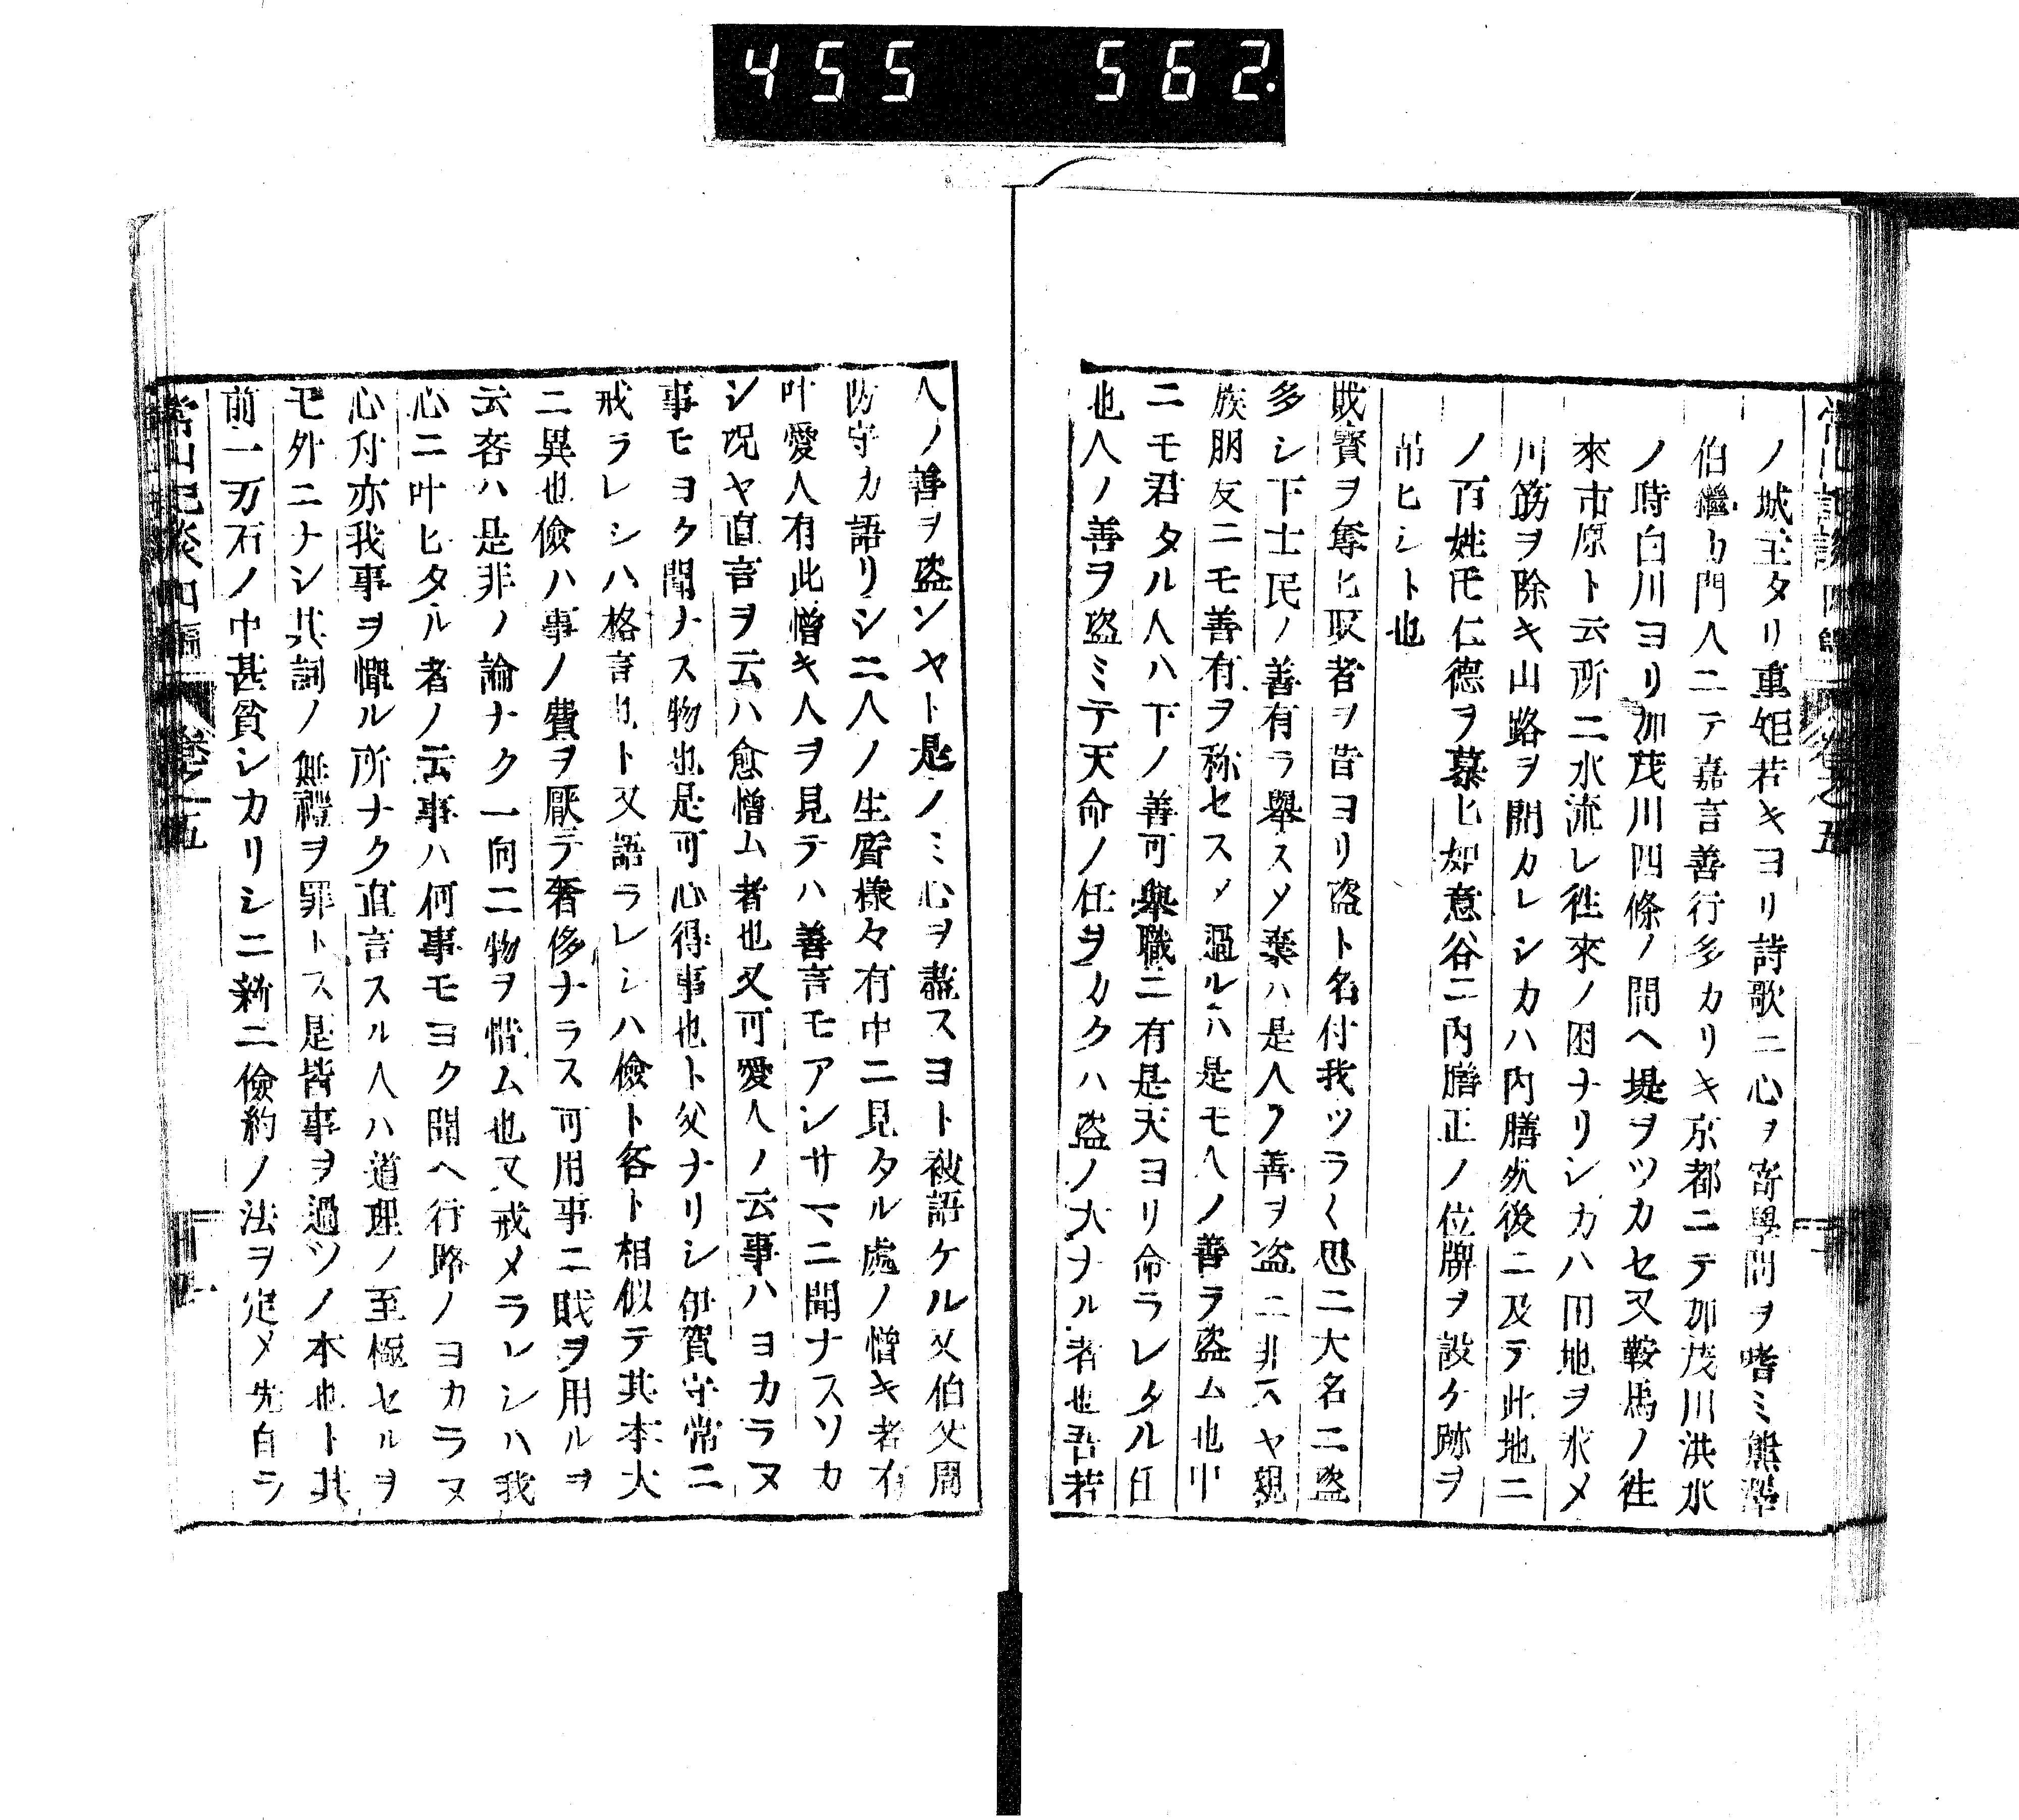 455 562.
ノ城主タリ重矩若キヨリ詩歌ニ心ヲ寄學問ヲ嗜ミ熊澤
伯繼カ門人ニテ嘉言善行多カリキ京都ニテ加茂川洪水
ノ時白川ヨリ加茂川四條ノ間ヘ堤ヲツカセ又鞍馬ノ徃
來市原ト云所ニ水流レ徃來ノ困ナリシカハ田地ヲ求メ
川筋ヲ除キ山路ヲ開カレシカハ内膳死後ニ及テ此地ニ
ノ百姓𪜈仁德ヲ慕ヒ如意谷ニ内膳正ノ位牌ヲ設ケ跡ヲ
吊ヒシト也
財寳ヲ奪ヒ取者ヲ昔ヨリ盗ト名付我ツラ〱思ニ大名ニ盗
多シ下士民ノ善有ラ擧スメ棄ハ是人ノ善ヲ盗ニ非スヤ親
族朋友ニモ善有ヲ称セスメ過ルハ是モ人ノ善ヲ盗ム也中
ニモ君タル人ハ下ノ善可擧職ニ有是天ヨリ命ラレタル任
也人ノ善ヲ盗ミテ天命ノ任ヲカクハ盗ノ大ヲル者也吾若
人ノ善ヲ盗ンヤト是ノミ心ヲ盡スヨト被語ケル又伯父周
防守カ語リシニ人ノ生質樣々有中ニ見タル處ノ憎キ者有
叶愛人有此憎キ人ヲ見テハ善言モアシサマニ聞ナスソカ
シ况ヤ直言ヲ云ハ愈憎ム者也又可愛人ノ云事ハヨカラヌ
事モヨク聞ナス物也是可心得事也ト父ナリシ伊賀守常ニ
戒ラレシハ格言也ト又語ラレシハ儉ト吝ト相似テ其本大
ニ異也儉ハ事ノ費ヲ厭テ奢侈ナラス可用事ニ財ヲ用ルヲ
云吝ハ是非ノ論ナク一向ニ物ヲ惜ム也又戒メラレシハ我
心ニ叶ヒタル者ノ云事ハ何事モヨク聞ヘ行跡ノヨカラヌ
心付亦我事ヲ憚ル所ナク直言スル人ハ道理ノ至極セルヲ
モ外ニナシ其詞ノ無禮ヲ罪トス是皆事ヲ過ツノ本也ト其
前一万石ノ中甚貧シカリシニ新ニ儉約ノ法ヲ定メ先自ラ
常山紀談四編 卷之五